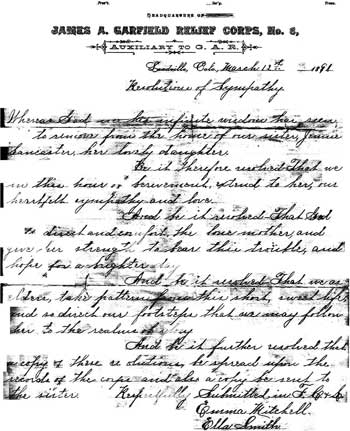 Pres't. Sec'y. Treas.
HEADQUARTERS OF
JAMES A. GARFIELD RELIEF CORPS, No. 6,
AUXILIARY TO G. A. R.
Leadville, Colo, March 12th 1891
Resolutions of Sympathy
Whereas God in his infinite wisdom has seen
to remove from the home of our sister, Jennie
Lancaster, her lovely daughter.
Be it therefore resolved That we
in this hour of bereavement, extend to her, our
heartfelt sympathy and love.
And be it resolved That God
direct and comfort, the lone mother, and
give her strength to bear this trouble, and
hope for a brighter day
And be it resolved That we as
take pattern from this short, sweet life
and so direct our footsteps that we may follow
her to the realms of day
And be it further resolved that
a copy of these resolutions, be spread upon the
records of the corps and also a copy be sent to
the sister Respectfully Submitted in F. C. & L.
Emma Mitchell.
Ella Smith